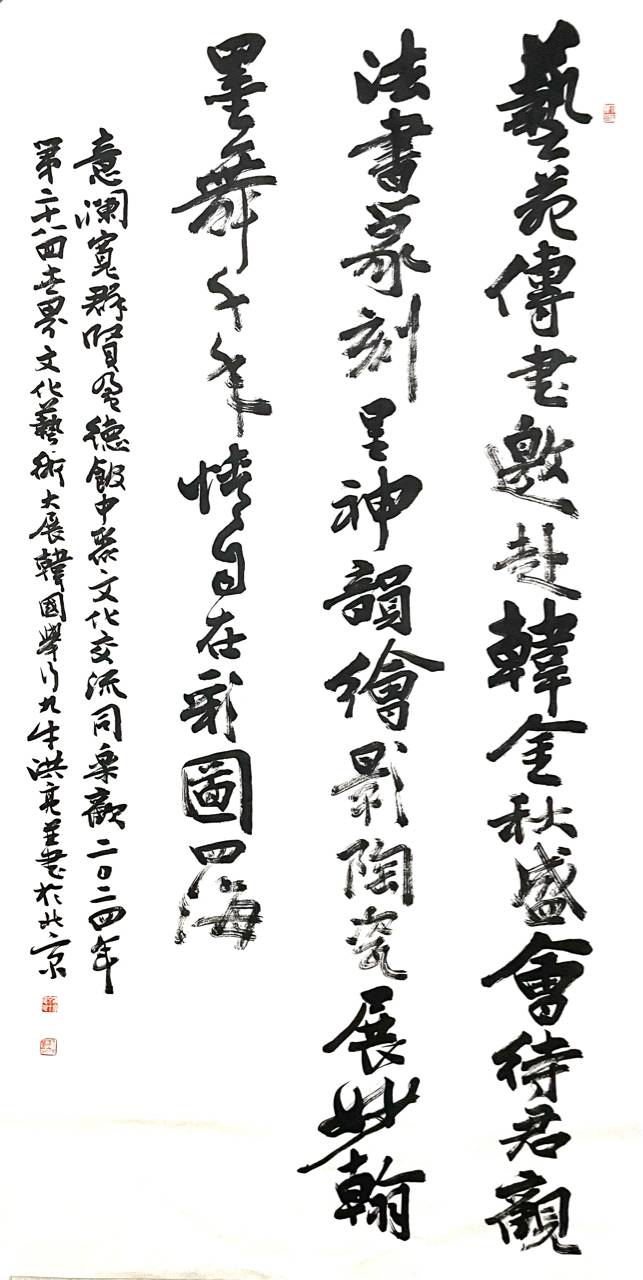 藝苑傳書邀赴韓金秋盛會待君觀
法書篆刻呈神韻繪影陶瓷展妙翰
墨舞千年情自在彩圖四海
意瀾寬群賢德中文化交流同樂歡二〇二四年
第二十八回世界文化藝術大展韓國舉行九牛洪亮並書於北京